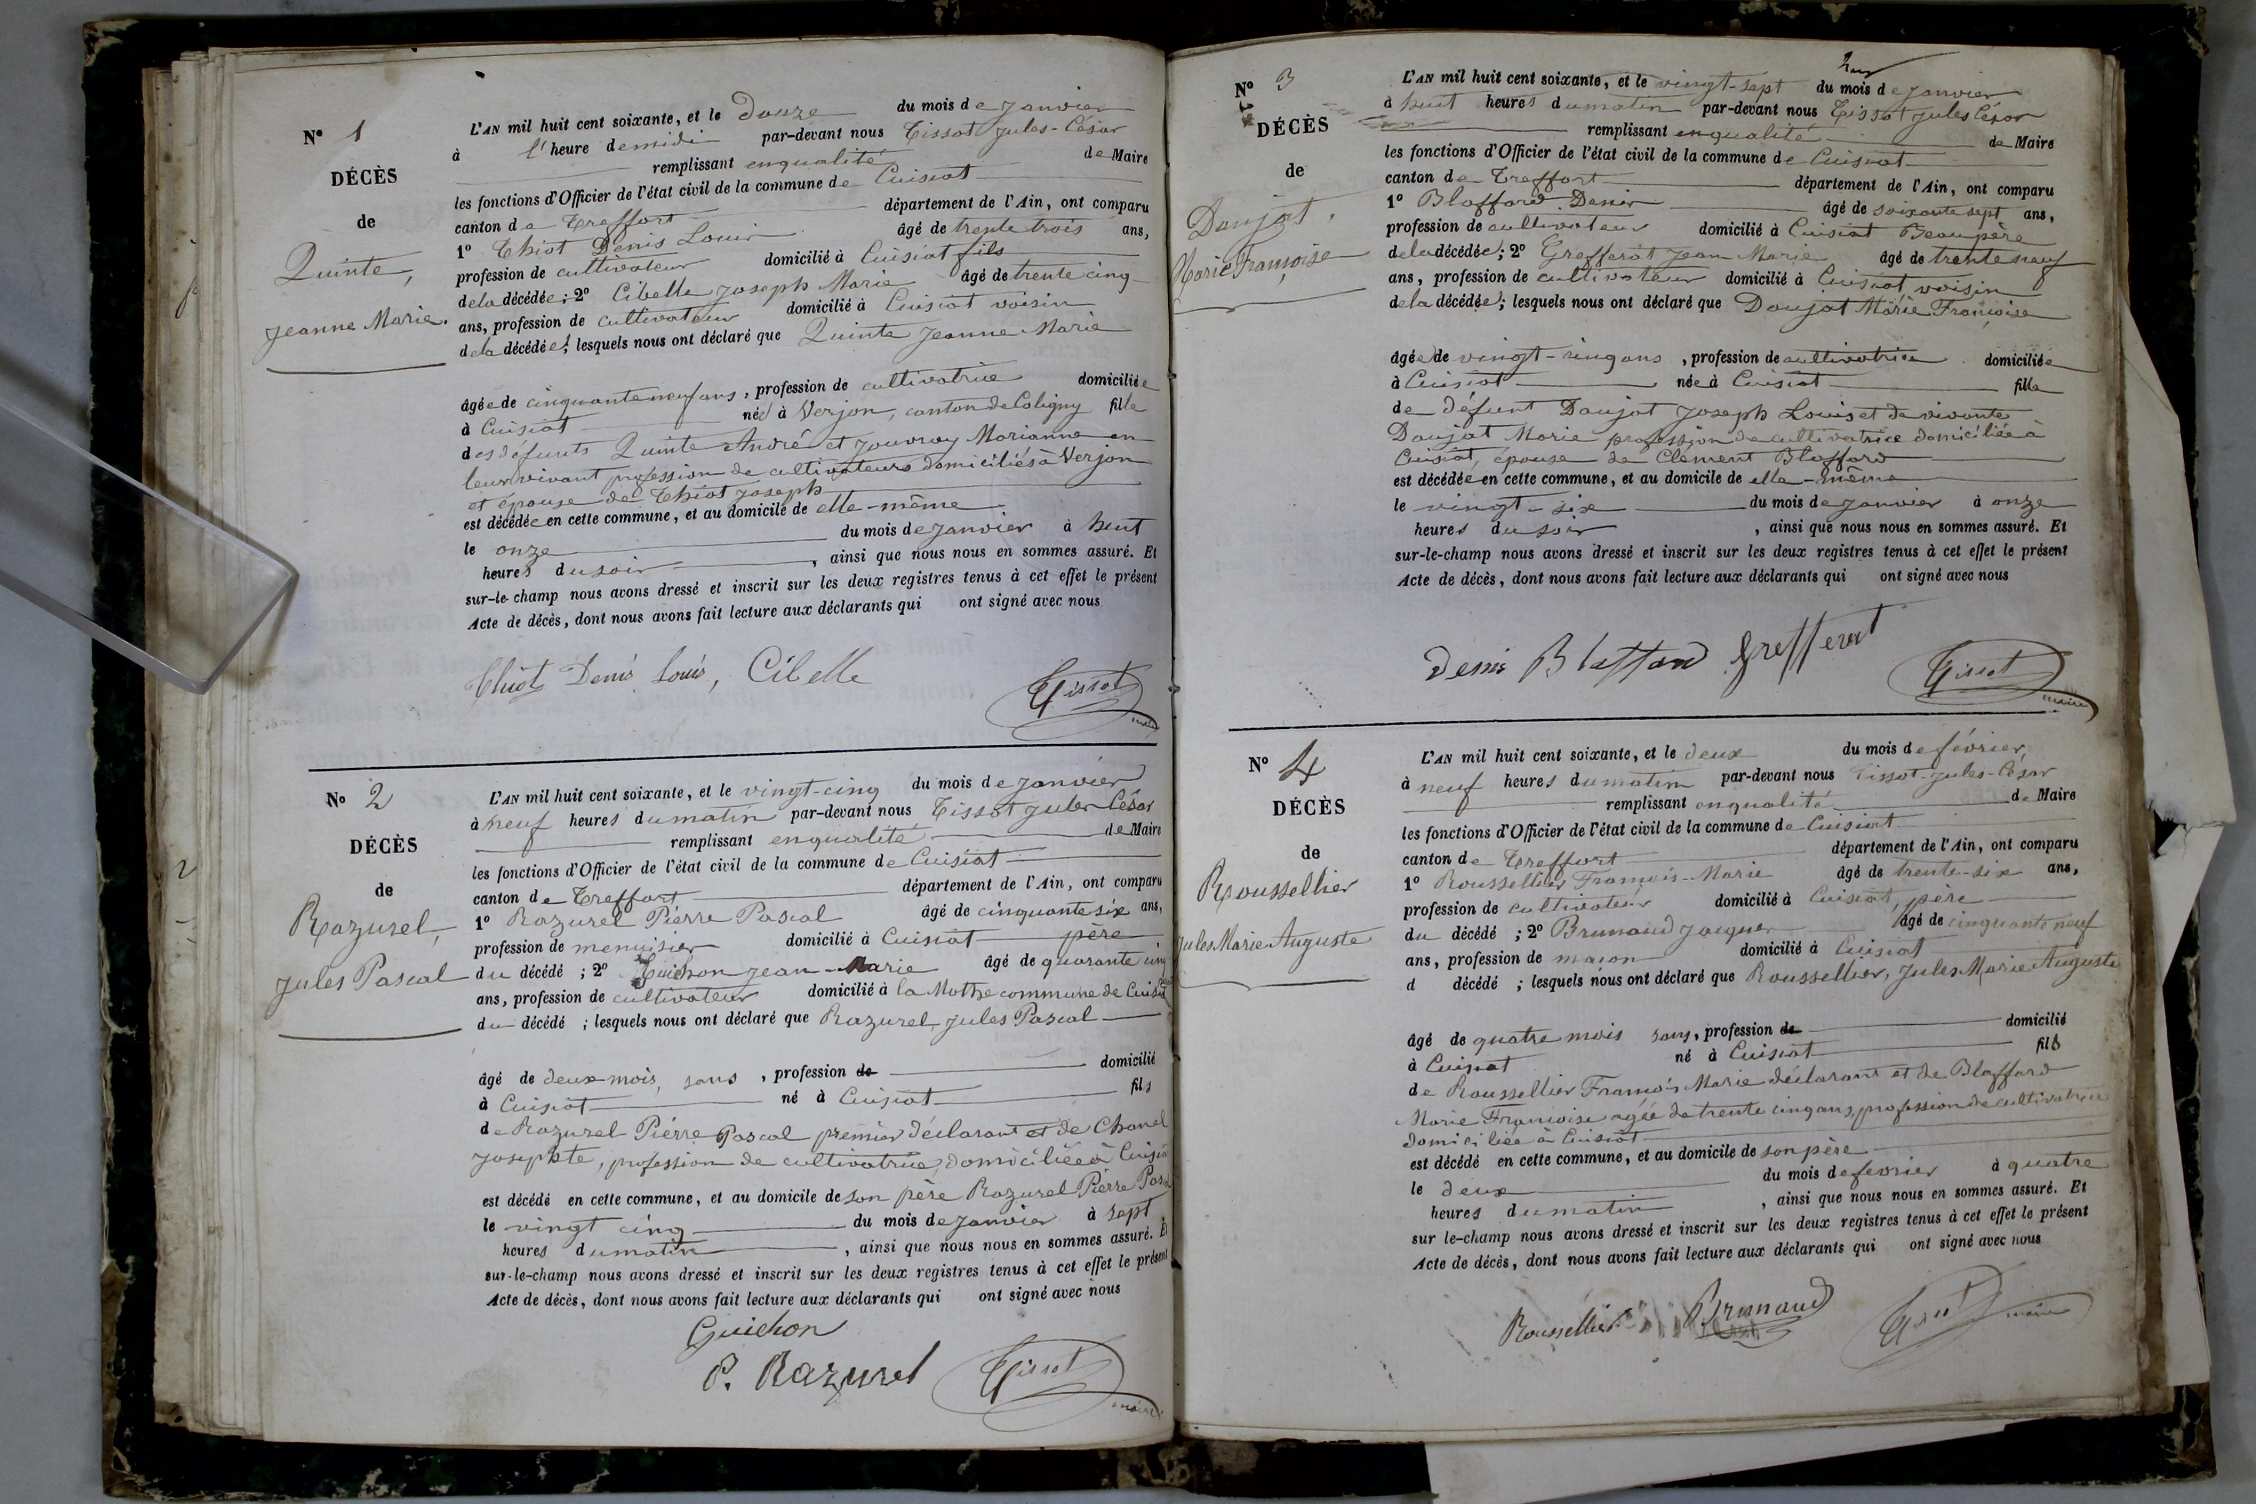 N° 1
DÉCÈS
de
Quinte,
Jeanne Marie.
L'AN mil huit cent soixante, et le Douze du mois de janvier
à l'heure de midi par-devant nous Tissot Jules-César
remplissant en qualité de Maire
les fonctions d'Officier de l'état civil de la commune de Cuisiat
canton de Treffort département de l'Ain, ont comparu
1° Thiot Denis Louis âgé de trente trois ans,
profession de cultivateur domicilié à Cuisiat fils
de la décédée; 2° Cibelle Joseph Marie âgé de trente cinq
ans, profession de cultivateur domicilié à Cuisiat voisin
de la décédée; lesquels nous ont déclaré que Quinte Jeanne Marie
âgée de cinquante neuf ans, profession de cultivatrice domiciliée
à Cuisiat née à Verjon, canton de Coligny fille
des défunts Quinte André et Jouvray Marianne en
leur vivant profession de cultivateurs domiciliés à Verjon
et épouse de Thiot Joseph
est décédée en cette commune, et au domicile de elle-même
le onze du mois de janvier à huit
heures du soir, ainsi que nous nous en sommes assuré. Et
sur-le-champ nous avons dressé et inscrit sur les deux registres tenus à cet effet le présent
Acte de décès, dont nous avons fait lecture aux déclarants qui ont signé avec nous
Thiot Denis Louis, Cibelle Tissot
maire
N° 2
DÉCÈS
de
Razurel,
Jules Pascal
L'AN mil huit cent soixante, et le vingt-cinq du mois de janvier
à neuf heures du matin par-devant nous Tissot Jules César
remplissant en qualité de Maire
les fonctions d'Officier de l'état civil de la commune de Cuisiat
canton de Treffort département de l'Ain, ont comparu
1° Razurel Pierre Pascal âgé de cinquante six ans,
profession de menuisier domicilié à Cuisiat père
du décédé; 2° Guichon Jean-Marie âgé de quarante cinq
ans, profession de cultivateur domicilié à la Mothe commune de Cuisiat
du décédé; lesquels nous ont déclaré que Razurel Jules Pascal
âgé de deux mois, sans, profession de domicilié
à Cuisiat né à Cuisiat fils
de Razurel Pierre Pascal premier déclarant et de Chanel
Josephte, profession de cultivatrice, domiciliée à Cuisiat
est décédé en cette commune, et au domicile de son père Razurel Pierre Pascal
le vingt cinq du mois de janvier à sept
heures du matin, ainsi que nous nous en sommes assuré. Et
sur-le-champ nous avons dressé et inscrit sur les deux registres tenus à cet effet le présent
Acte de décès, dont nous avons fait lecture aux déclarants qui ont signé avec nous
Guichon
P. Razurel Tissot
maire
N° 3
DÉCÈS
de
Doujat,
Marie Françoise
L'AN mil huit cent soixante, et le vingt-sept du mois de janvier
à huit heures du matin par-devant nous Tissot Jules César
remplissant en qualité de Maire
les fonctions d'Officier de l'état civil de la commune de Cuisiat
canton de Treffort département de l'Ain, ont comparu
1° Blaffard Denis âgé de soixante sept ans,
profession de cultivateur domicilié à Cuisiat Beau père
de la décédée; 2° Grefferat Jean Marie âgé de trente neuf
ans, profession de cultivateur domicilié à Cuisiat voisin
de la décédée; lesquels nous ont déclaré que Doujat Marie Françoise
âgée de vingt-cinq ans, profession de cultivatrice domiciliée
à Cuisiat née à Cuisiat fille
de défunt Doujat Joseph Louis et de vivante
Doujat Marie profession de cultivatrice domiciliée à
Cuisiat, épouse de Clément Blaffard
est décédée en cette commune, et au domicile de elle-même
le vingt-six du mois de janvier à onze
heures du soir, ainsi que nous nous en sommes assuré. Et
sur-le-champ nous avons dressé et inscrit sur les deux registres tenus à cet effet le présent
Acte de décès, dont nous avons fait lecture aux déclarants qui ont signé avec nous
Denis Blaffard Grefferat Tissot
maire
N° 4
DÉCÈS
de
Roussellier
Jules Marie Auguste
L'AN mil huit cent soixante, et le deux du mois de février
à neuf heures du matin par-devant nous Tissot-Jules-César
remplissant en qualité de Maire
les fonctions d'Officier de l'état civil de la commune de Cuisiat
canton de Treffort département de l'Ain, ont comparu
1° Roussellier François-Marie âgé de trente-six ans,
profession de cultivateur domicilié à Cuisiat, père
du décédé; 2° Brunaud Jacques âgé de cinquante neuf
ans, profession de maçon domicilié à Cuisiat
d décédé; lesquels nous ont déclaré que Roussellier, Jules Marie Auguste
âgé de quatre mois sans, profession de domicilié
à Cuisiat né à Cuisiat fils
de Roussellier François Marie déclarant et de Blaffard
Marie Françoise agée de trente cinq ans, profession de cultivatrice
domiciliée à Cuisiat
est décédé en cette commune, et au domicile de son père
le deux du mois de février à quatre
heures du matin, ainsi que nous nous en sommes assuré. Et
sur le-champ nous avons dressé et inscrit sur les deux registres tenus à cet effet le présent
Acte de décès, dont nous avons fait lecture aux déclarants qui ont signé avec nous
Roussellier Brunaud Tissot maire